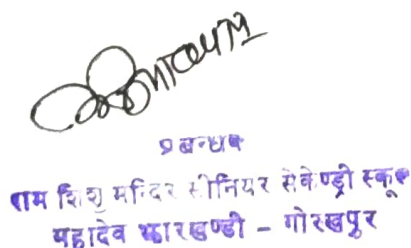 प्रबन्धक
राम शिशु मन्दिर सीनियर सेकेण्ड्री स्कूल
महादेव झारखण्डी - गोरखपुर